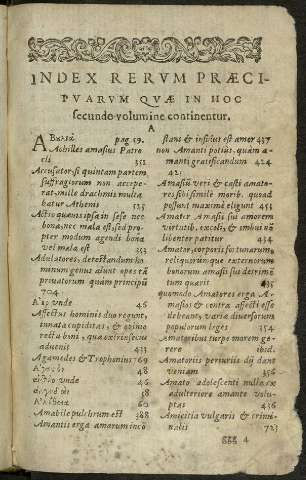 INDEX RERVM PRÆCI-
PVARVM QVÆ IN HOC
secundo volumine continentur.
A
pag 59.
Achilles amasius Patro
cli 352
Accusator si quintam partem
suffragiorum non accepe-
rat, mille drachmis multa
batur Athenis 525
Actio quæuis ipsa in sese nec
bona, nec mala est, sed pro-
pter modum agendi bona
vel mala est 353
Adulatores, detestandum ho
minum genus alunt opes tā
priuatorum quam principū
704
unde 46
Affectus hominis duo regunt,
innata cupiditas, & opinio
recti boni, quæ extrinsecus
aduenit 433
Agamedes & Trophonius 69
58
unde 46
48
60
Amabile pulchrum est 348
Amantis erga amatum inco
stans & insidus est amor 437
non Amanti potius, quàm a-
manti gratificandum 424
421
Amasiū veri & casti amato-
res sibi simile morib. quoad
possunt maximè eligunt 453
Amator Amasij sui amorem
virtutib. excoli, & imbui nō
libenter patitur 434
Amator corporis fortunarum,
reliquarúmque externarum
bonorum amasij sui detrimē
tum quærit 435
quomodo Amatores erga A-
masios & contra affecti esse
debeant, varia diuersorum
populorum leges 354
Amatoribus turpe morem ge-
rere ibid.
Amatoris periuriis dij dant
veniam 356
Amato adolescenti nulla ex
adulteriore amante volu-
ptas 436
Amicitia vulgaris & crimi-
nalis 723
ggg 4